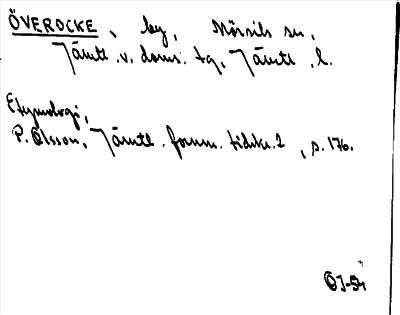 ÖVEROCKE, by, Mörsils sn,
Jämtl. v. doms. tg, Jämtl. l.
Etymologi,
P. Olsson, Jämtl. fornm. tidskr. 2, s. 176.
ÖJ-54